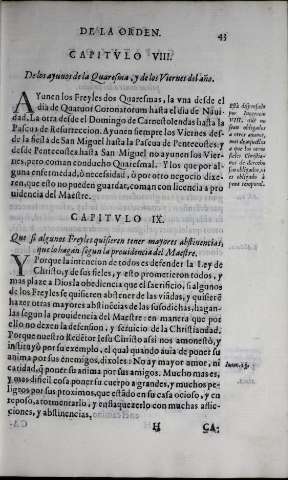 DE LA ORDEN. 43
CAPITVLO VIII.
De los ayunos de la Quaresma, y de los Viernes del año.
AYunen los Freyles dos Quaresmas, la vna desde el
dia de Quatuor Coronatorum hasta el dia de Naui-
dad. La otra desde el Domingo de Carnestolendas hasta la
Pascua de Resurreccion. Ayunen siempre los Viernes des-
de la fiesta de San Miguel hasta la Pascua de Pentecostes, y
desde Pentecostes hasta San Miguel no ayunen los Vier-
nes, pero coman conducho Quaresmal. Y los que por al-
guna enfermedad, ò necessidad, ò por otro negocio dixe-
ren, que esto no pueden guardar, coman con licencia a pro
uidencia del Maestre.
Està dispensado
por Inocencio
VIII. que no
sean obligados
a otros ayunos,
mas de aquellos
a que los otros
fieles Christia-
nos de derecho
son obligados, ni
es obligado à
pena temporal.
CAPITVLO IX.
Que si algunos Freyles quisieren tener mayores abstinencias,
que lo hagan segun la prouidencia del Maestre.
Y Porque la intencion de todos es defender la Ley de
Christo, y de sus fieles, y esto prometieron todos, y
mas plaze a Dios la obediencia que el sacrificio, si algunos
de los Freyles se quisieren abstener de las viãdas, y quisierẽ
hazer otras mayores abstinẽcias de las susodichas, hagan-
las segun la prouidencia del Maestre: en manera que por
ello no dexen la defension, y seruicio de la Christiandad.
Porque nuestro Redẽtor Iesu Christo assi nos amonestò, y
instituyò por su exemplo, el qual quando auia de poner su
anima por sus enemigos, dixoles: No ay mayor amor, ni
caridad, q̃ poner su anima por sus amigos. Mucho mas es,
y mas dificil cosa poner su cuerpo a grandes, y muchos pe-
ligros por sus proximos, que estàdo en su casa ocioso, y en
reposo, atormentarlo, y enflaquezerlo con muchas aflic-
ciones, y abstinencias.
Ioan. 15.
H CA-